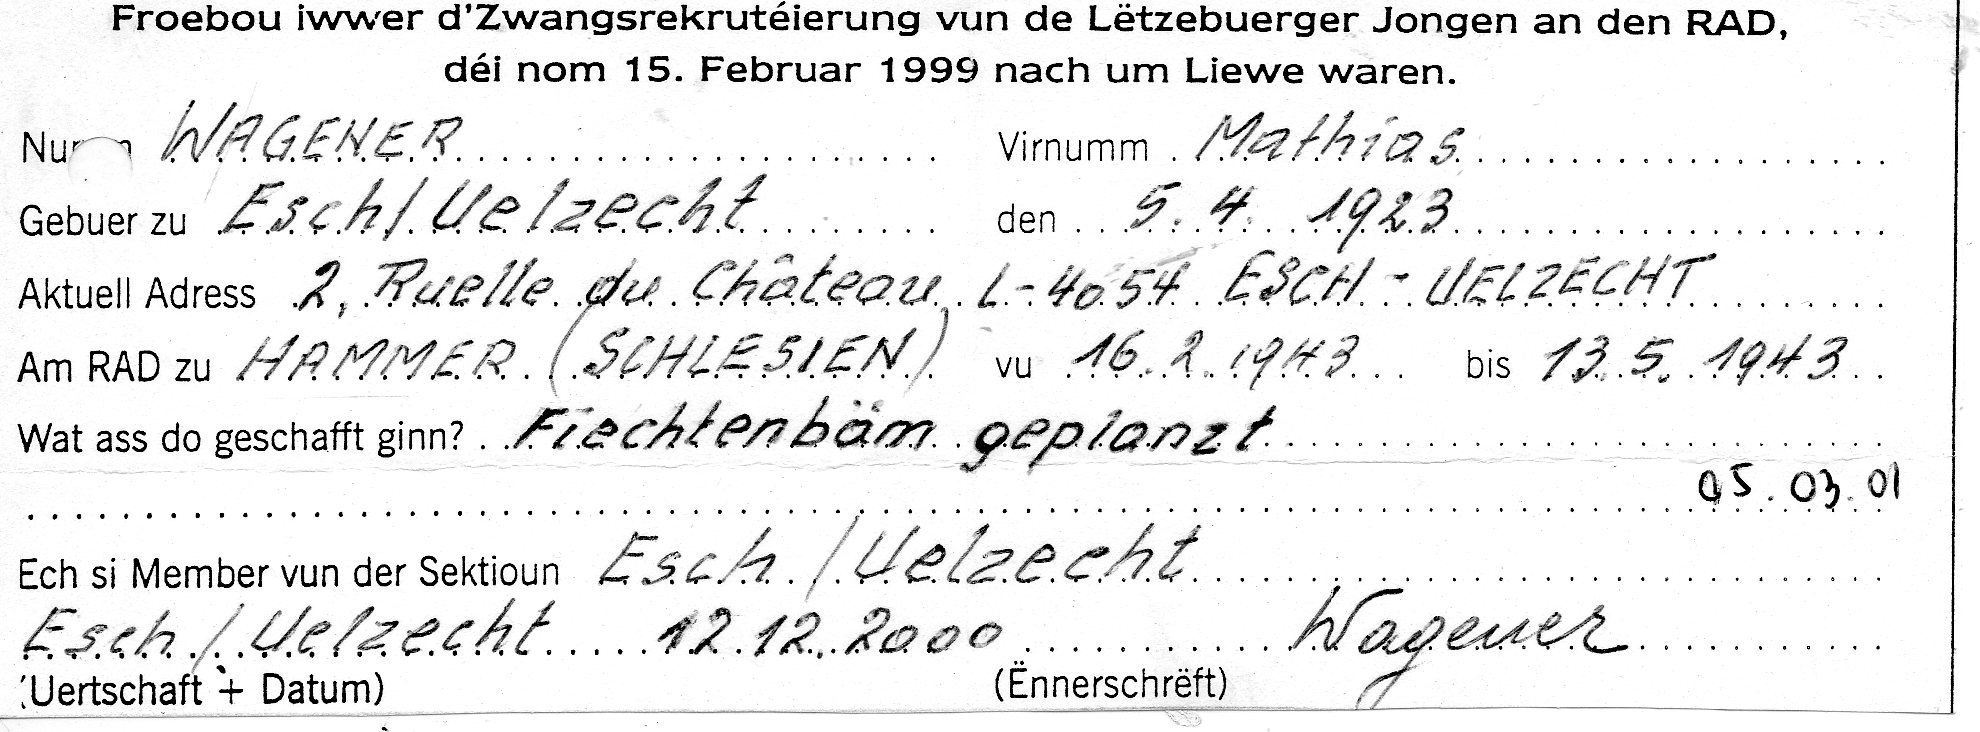 Froebou iwwer d'Zwangsrekrutéierung vun de Lëtzebuerger Jongen an den RAD,
déi nom 15. Februar 1999 nach um Liewe waren.
WAGENER Virnumm Mathias
Gebuer zu Esch/Uelzecht den 5.4. 1923
Aktuell Adress 2, Ruelle du Château L-4054 ESCH-UELZECHT
Am RAD zu HAMMER (SCHLESIEN) vu 16.2.1943 bis 13.5.1943
Wat ass do geschafft ginn? Fiechtenbäm geplanzt
05.03.01
Ech si Member vun der Sektioun Esch/Uelzecht
Esch/Uelzecht 12.12.2000 Wagener
(Uertschaft + Datum) (Ënnerschrëft)